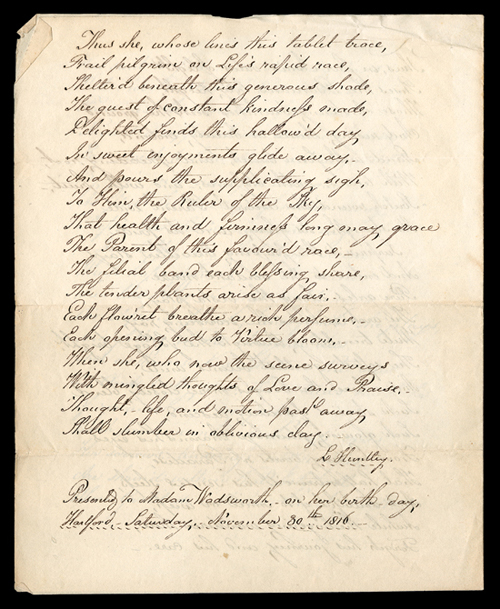 Thus she, whose lines this tablet trace,
Frail pilgrim on Life's rapid race,
Shelter'd beneath this generous shade,
The guest of constant kindness made,
Delighted finds this hallow'd day,
In sweet enjoyments glide away,-
And pours the supplicating sigh,
To Him, the Ruler of the Sky,
That health and firmness long may grace
The Parent of this favour'd race,-
The filial band each blessing share,
The tender plants arise as fair,-
Each flow'ret breathe a rich perfume,-
Each opening bud to Virtue bloom,-
When she, who now the scene surveys
With mingled thoughts of Love and Praise,-
Thought,- life, and motion past away,
Shall slumber in oblivious clay.
L. Huntley.
Presented to Madam Wadsworth,- on her birth-day,
Hartford,- Saturday,- November 30th 1816.-